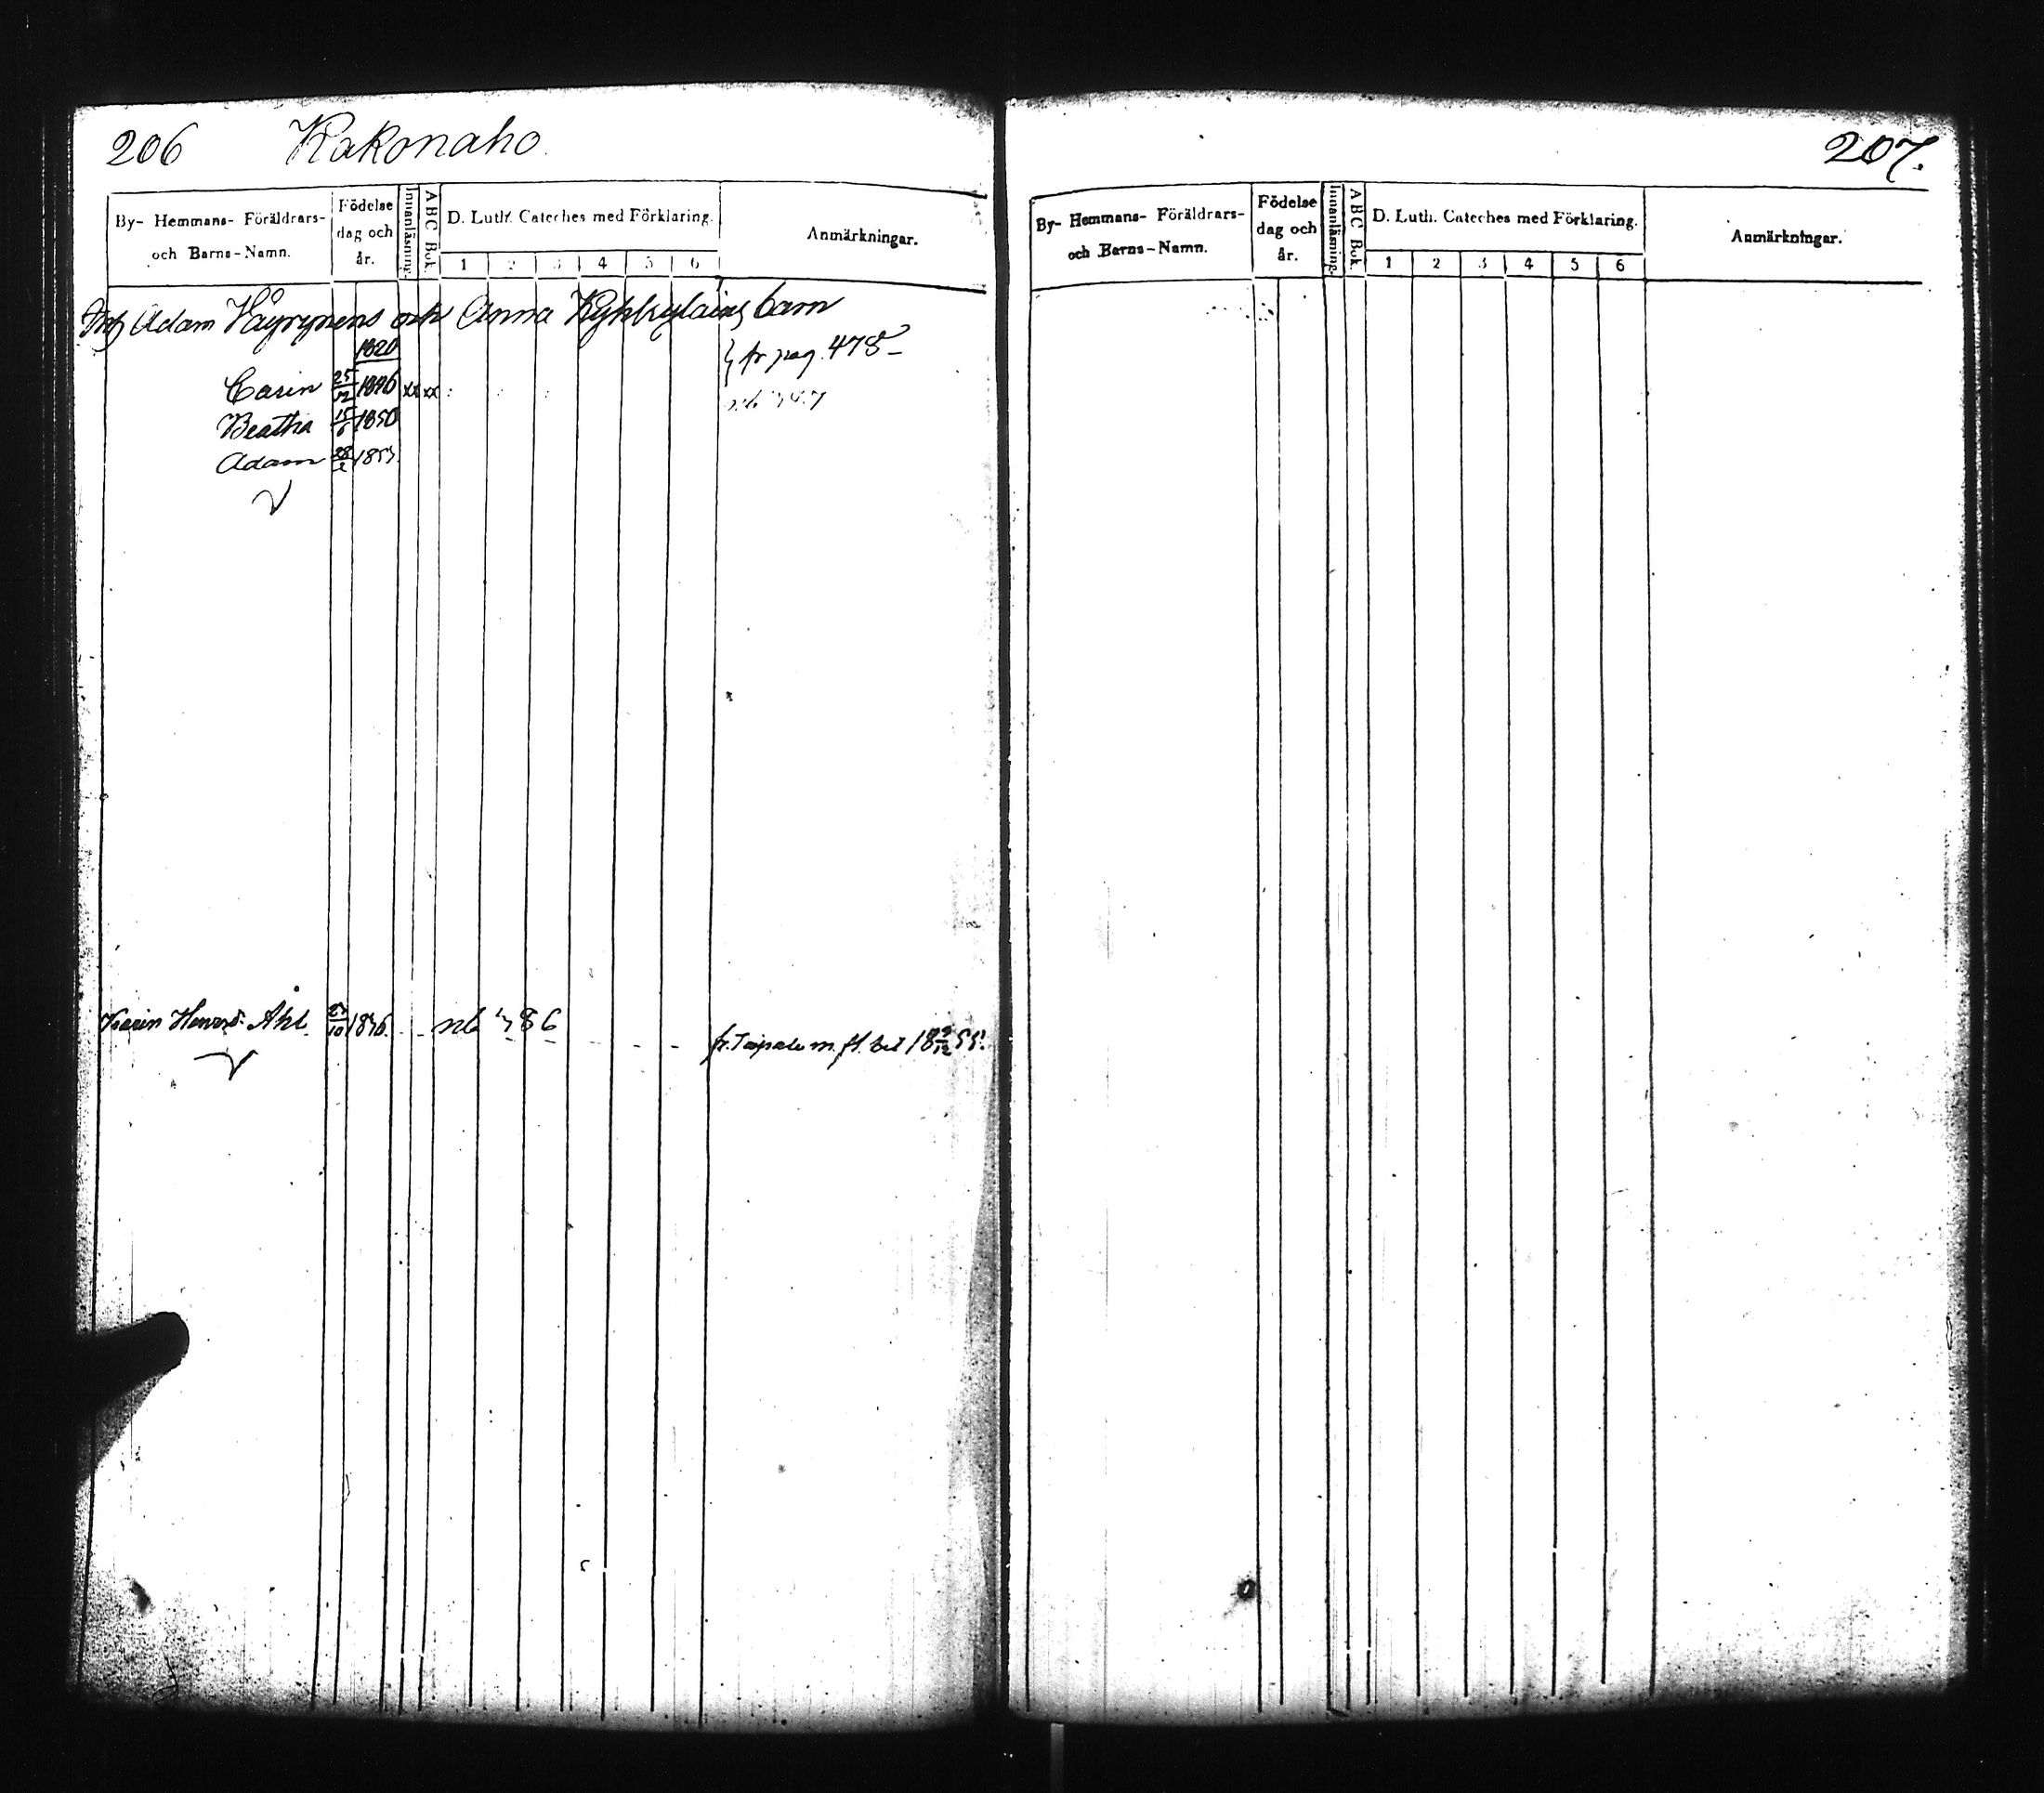 206 Kakonaho.
By- Hemmans- Föräldrars- och Barns-Namn.
Födelse dag och år.
Innanläsning.
ABC Bok.
D. Luth. Cateches med Förklaring.
1 2 3 4 5 6
Anmärkningar.
Adam Väyrynens och Anna Kyhkyläins barn
1820
fr pag. 478
Carin 25/12 1846 xx xx
Beatha 15/6 1850
Adam 28/2 1853.
Karin Henrsd. Ahl. 1846.
fr. Taipale m. fl. bet
207.
By- Hemmans- Föräldrars- och Barns-Namn.
Födelse dag och år.
Innanläsning.
ABC Bok.
D. Luth. Cateches med Förklaring.
1 2 3 4 5 6
Anmärkningar.